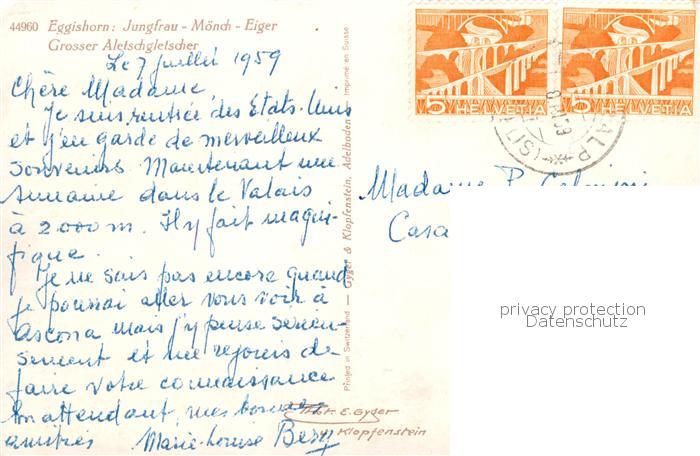 44960 Eggishorn: Jungfrau - Mönch - Eiger
Grosser Aletschgletscher
Le 7 juillet 1959
Chère Madame
Je suis rentrée des Etats-Unis
et j'en garde de merveilleux
souvenirs. Maintenant une
semaine dans le Valais
à 2000 m. Il y fait magni-
fique.
Je ne sais pas encore quand
je pourrai aller vous voir à
Ascona mais j'y pense sérieu-
sement et me réjouis de
faire votre connaissance
En attendant, mes bonnes
amitiés Marie-Louise
Printed in Switzerland — Gyger & Klopfenstein, Adelboden — Imprimé en Suisse
Phot. E. Gyger
Klopfenstein
5 HELVETIA
5 HELVETIA
ALP
Madame P.
Casa
privacy protection
Datenschutz